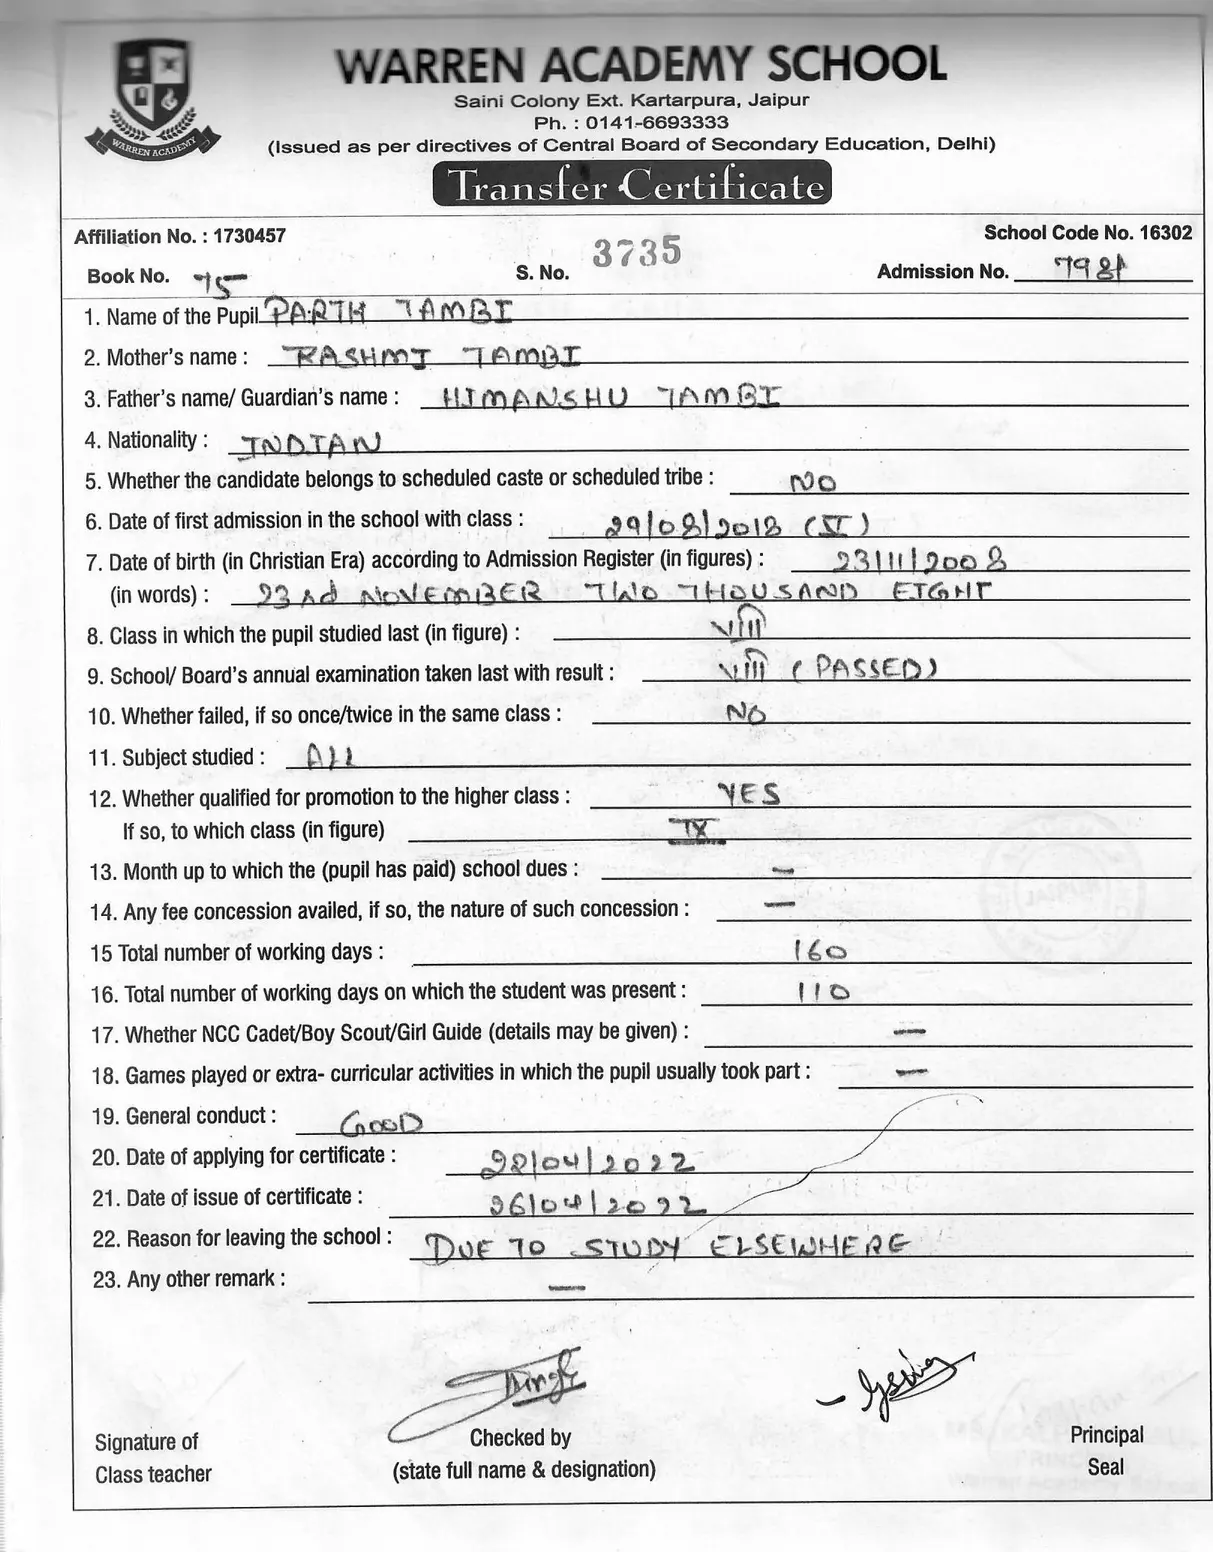 WARREN ACADEMY SCHOOL
Saini Colony Ext. Kartarpura, Jaipur
Ph. : 0141-6693333
(Issued as per directives of Central Board of Secondary Education, Delhi)
WARREN ACADEMY
Transfer Certificate
Affiliation No. : 1730457 School Code No. 16302
Book No. 75 S. No. 3735 Admission No. 7981
1. Name of the Pupil PARTH TAMBI
2. Mother's name : RASHMI TAMBI
3. Father's name/ Guardian's name : HIMANSHU TAMBI
4. Nationality : INDIAN
5. Whether the candidate belongs to scheduled caste or scheduled tribe : NO
6. Date of first admission in the school with class : 29/08/2018 (V)
7. Date of birth (in Christian Era) according to Admission Register (in figures) : 23/11/2008
(in words) : 23rd NOVEMBER TWO THOUSAND EIGHT
8. Class in which the pupil studied last (in figure) : VIII
9. School/ Board's annual examination taken last with result : VIII (PASSED)
10. Whether failed, if so once/twice in the same class : NO
11. Subject studied : ALL
12. Whether qualified for promotion to the higher class : YES
If so, to which class (in figure) IX
13. Month up to which the (pupil has paid) school dues : —
14. Any fee concession availed, if so, the nature of such concession : —
15 Total number of working days : 160
16. Total number of working days on which the student was present : 110
17. Whether NCC Cadet/Boy Scout/Girl Guide (details may be given) : —
18. Games played or extra- curricular activities in which the pupil usually took part : —
19. General conduct : GOOD
20. Date of applying for certificate : 22/04/2022
21. Date of issue of certificate : 26/04/2022
22. Reason for leaving the school : DUE TO STUDY ELSEWHERE
23. Any other remark : —
Signature of Checked by Principal
Class teacher (state full name & designation) Seal